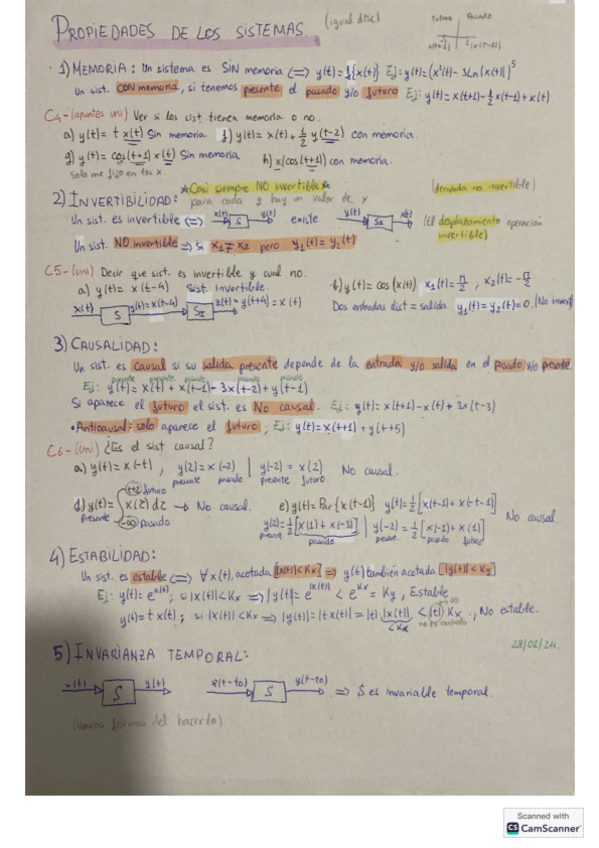 PROPIEDADES DE LOS SISTEMAS. (igual disc)
Futuro Pasado
1) MEMORIA: Un sistema es SIN memoria <=> y(t)=f{x(t)} Ej: y(t)=(x²(t)-3Ln(x(t)))⁵
Un sist. CON MEMORIA, si tenemos presente el pasado y/o futuro Ej: y(t)=x(t+1)-½x(t-1)+x(t)
C4-(apuntes uni) Ver si los sist tienen memoria o no.
a) y(t)= t x(t) Sin memoria. f) y(t)= x(t)+½ y(t-2) con memoria.
g) y(t)= cos(t+1) x(t) Sin memoria h) x(cos(t+1)) con memoria.
Solo me fijo en las x
2) INVERTIBILIDAD: *Casi siempre NO invertible* (derivada no invertible)
para cada y hay un valor de x
Un sist. es invertible <=> x(t) S y(t) existe y(t) x(t) (El desplazamiento operación invertible)
Un sist. NO invertible => si x₁≠x₂ pero y₁(t)=y₂(t)
C5-(uni) Decir que sist. es invertible y cual no.
a) y(t)= x(t-4) Sist. invertible. b) y(t)= cos(x(t)) x₁(t)=π/2 ; x₂(t)=-π/2
x(t) S y(t)=x(t-4) z(t)=y(t+4)=x(t) Dos entradas dist = salida y₁(t)=y₂(t)=0
3) CAUSALIDAD:
Un sist. es causal si su salida presente depende de la entrada y/o salida en el pasado y/o presente
presente presente pasado pasado pasado
Ej: y(t)= x(t)+x(t-1)-3x(t-2)+y(t-1)
Si aparece el futuro el sist. es No causal. Ej: y(t)= x(t+1)-x(t)+3x(t-3)
• Anticausal: solo aparece el futuro; Ej: y(t)=x(t+1)+y(t+5)
C6-(uni) ¿Es el sist causal?
a) y(t)= x(-t), y(2)= x(-2) | y(-2)= x(2) No causal.
presente pasado presente futuro
d) y(t)= ∫ x(τ) dτ -> No causal. e) y(t)= Par{x(t-1)} y(t)=½[x(t-1)+x(-t-1)] No causal.
t+2 futuro
presente -∞ pasado
y(2)=½[x(1)+x(-3)] | y(-2)=½[x(-3)+x(1)]
present. pasado present. pasado futuro
4) ESTABILIDAD:
Un sist. es estable <=> ∀x(t), acotada |x(t)|<Kx => y(t) también acotada |y(t)|<Ky
Ej: y(t)= e^x(t); si |x(t)|<Kx => |y(t)|= e^|x(t)| < e^Kx = Ky, Estable
y(t)= t x(t); si |x(t)|<Kx => |y(t)|=|t x(t)|=|t| |x(t)| < |t| Kx., No estable.
<Kx
28/02/24.
5) INVARIANZA TEMPORAL:
x(t) S y(t) x(t-to) S y(t-to) => S es invariable temporal.
(varias formas del hacerlo)
Scanned with
CS CamScanner